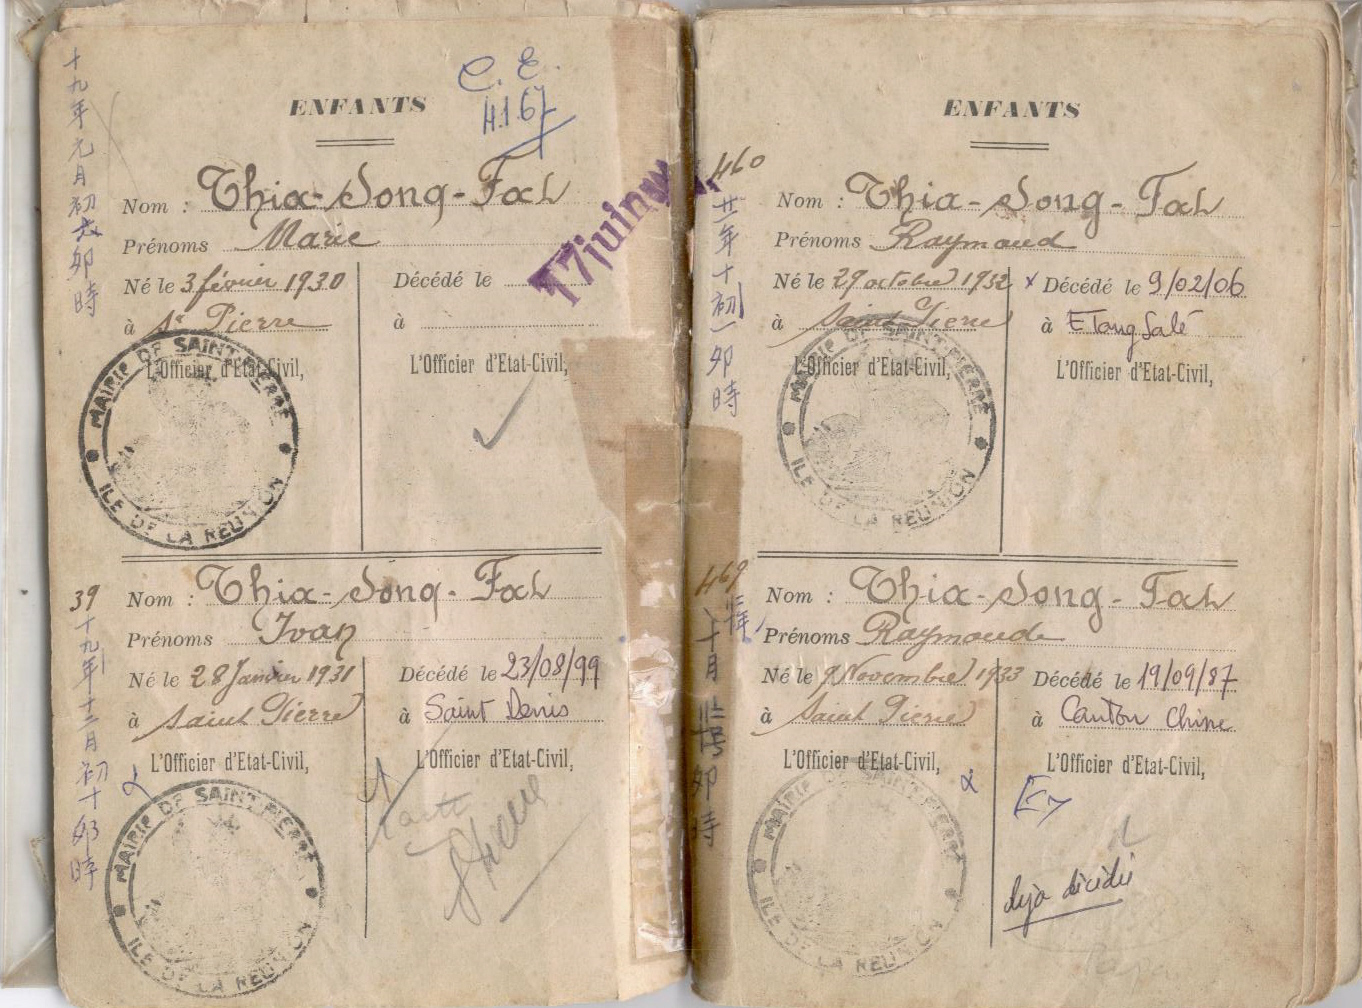 十九年元月初六卯時
C. E.
4.1.67
ENFANTS
Nom : Thia-Song-Fat
Prénoms Marie
Né le 3 février 1930
à St Pierre
L'Officier d'Etat-Civil,
MAIRIE DE SAINT-PIERRE
ILE DE LA REUNION
Décédé le
à
L'Officier d'Etat-Civil,
17 juin
39
十九年十二月初十卯時
Nom : Thia-Song-Fat
Prénoms Ivan
Né le 28 Janvier 1931
à Saint Pierre
L'Officier d'Etat-Civil,
MAIRIE DE SAINT-PIERRE
ILE DE LA REUNION
Décédé le 23/08/99
à Saint Denis
L'Officier d'Etat-Civil,
460
廿一年十初一卯時
ENFANTS
Nom : Thia-Song-Fat
Prénoms Raymond
Né le 29 octobre 1932
à Saint Pierre
L'Officier d'Etat-Civil,
MAIRIE DE SAINT-PIERRE
ILE DE LA REUNION
x Décédé le 9/02/06
à Etang Salé
L'Officier d'Etat-Civil,
469
卯時
Nom : Thia-Song-Fat
Prénoms Raymonde
Né le 9 Novembre 1933
à Saint Pierre
L'Officier d'Etat-Civil,
MAIRIE DE SAINT-PIERRE
ILE DE LA REUNION
Décédé le 19/09/87
à Canton Chine
L'Officier d'Etat-Civil,
déjà décédé